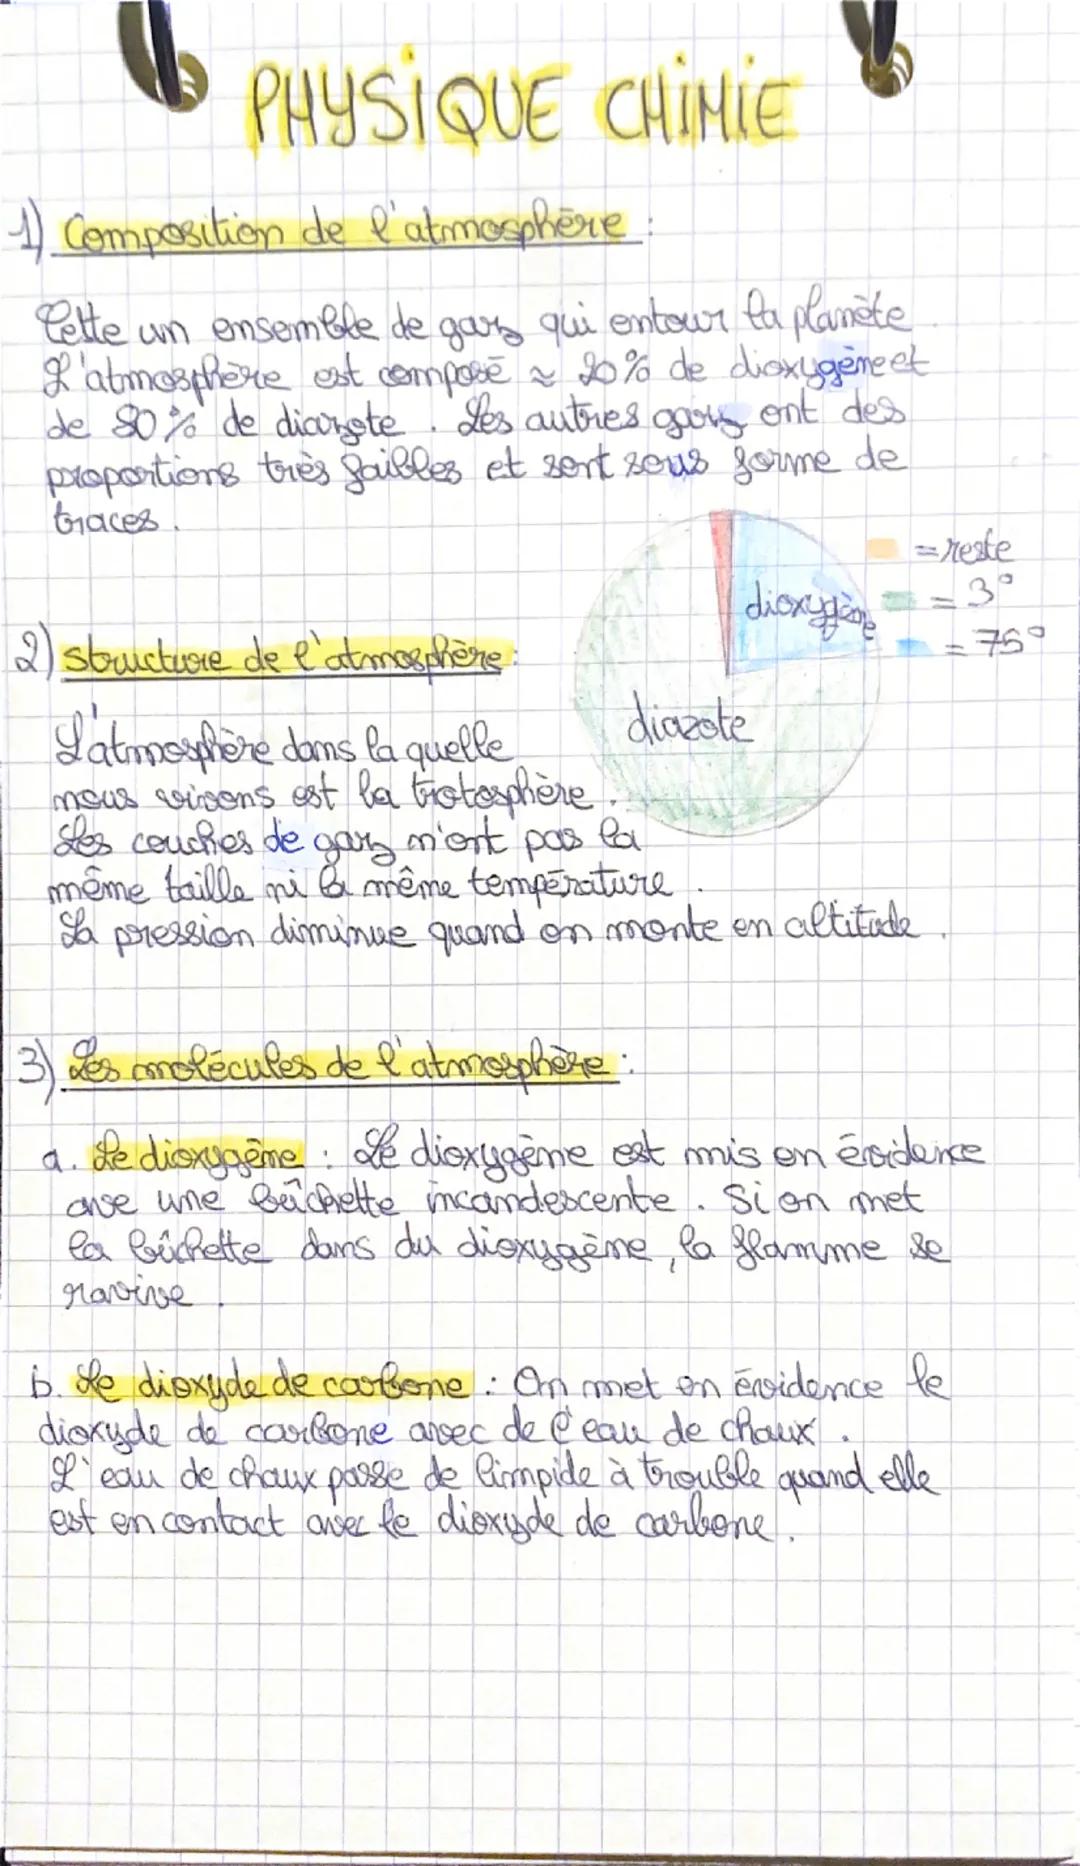 PHYSIQUE CHIMIE
1) Composition de l'atmosphère :
Cette un ensemble de gaz qui entour la planète.
L'atmosphère est composé ≈ 20% de dioxygène et
de 80% de diazote. Les autres gaz ont des
proportions très faibles et sont sous forme de
traces.
= reste
= 3°
= 75°
dioxygène
diazote
2) structure de l'atmosphère :
L'atmosphère dans la quelle
nous vivons est la trotosphère.
Les couches de gaz n'ont pas la
même taille ni la même température.
La pression diminue quand on monte en altitude.
3) Les molécules de l'atmosphère :
a. Le dioxygène : Le dioxygène est mis en évidence
ave une bûchette incandescente. Si on met
la bûchette dans du dioxygène, la flamme se
ravive.
b. Le dioxyde de carbone : On met en évidence le
dioxyde de carbone avec de l'eau de chaux.
L'eau de chaux passe de limpide à trouble quand elle
est en contact avec le dioxyde de carbone.